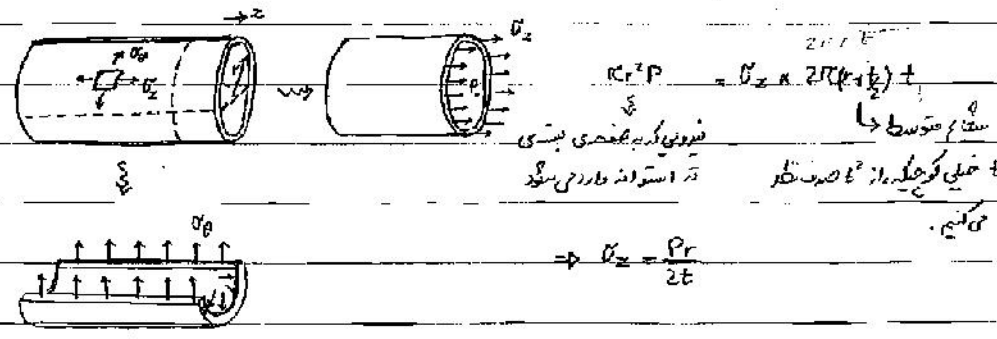 z
σθ
σz
r
σz
P
2πrt
πr²P = σz × 2π(r+t/2) t
شعاع متوسط
نیرویی که به صفحه‌ی پشتی
ته استوانه وارد می‌شود
t خیلی کوچیکه، از t² صرف نظر
می‌کنیم.
σθ
⇒ σz = Pr/2t